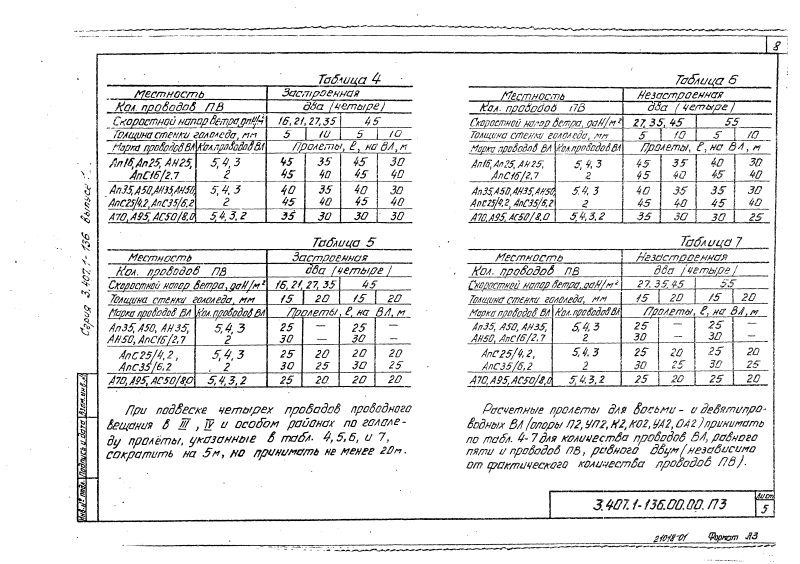 8
Таблица 4
Местность Застроенная
Кол. проводов ПВ два (четыре)
Скоростной напор ветра, даН/м² 16, 21, 27, 35 45
Толщина стенки гололеда, мм 5 10 5 10
Марка проводов ВЛ Кол. проводов ВЛ Пролеты, ℓ, на ВЛ, м
Ап16, Ап25, АН25, 5, 4, 3 45 35 45 30
АпС16/2.7 2 45 40 45 40
Ап35, А50, АН35, АН50, 5, 4, 3 40 35 40 30
АпС25/4,2, АпС35/6,2 2 45 40 45 40
А70, А95, АС50/8,0 5, 4, 3, 2 35 30 30 30
Таблица 5
Местность Застроенная
Кол. проводов ПВ два (четыре)
Скоростной напор ветра, даН/м² 16, 21, 27, 35 45
Толщина стенки гололеда, мм 15 20 15 20
Марка проводов ВЛ Кол. проводов ВЛ Пролеты, ℓ, на ВЛ, м
Ап35, А50, АН35, 5, 4, 3 25 — 25 —
АН50, АпС16/2.7 2 30 — 30 —
АпС25/4,2, 5, 4, 3 25 20 20 20
АпС35/6,2 2 30 25 30 25
А70, А95, АС50/8,0 5, 4, 3, 2 25 20 20 20
При подвеске четырех проводов проводного
вещания в III, IV и особом районах по гололе-
ду пролеты, указанные в табл. 4, 5, 6, и 7,
сократить на 5м, но принимать не менее 20м.
Таблица 6
Местность Незастроенная
Кол. проводов ПВ два (четыре)
Скоростной напор ветра, даН/м² 27, 35, 45 55
Толщина стенки гололеда, мм 5 10 5 10
Марка проводов ВЛ Кол. проводов ВЛ Пролеты, ℓ, на ВЛ, м
Ап16, Ап25, АН25, 5, 4, 3 45 35 40 30
АпС16/2.7 2 45 40 45 40
Ап35, А50, АН35, АН50, 5, 4, 3 40 35 35 30
АпС25/4,2, АпС35/6,2 2 45 40 45 40
А70, А95, АС50/8,0 5, 4, 3, 2 35 30 30 25
Таблица 7
Местность Незастроенная
Кол. проводов ПВ два (четыре)
Скоростной напор ветра, даН/м² 27, 35, 45 55
Толщина стенки гололеда, мм 15 20 15 20
Марка проводов ВЛ Кол. проводов ВЛ Пролеты, ℓ, на ВЛ, м
Ап35, А50, АН35, 5, 4, 3 25 — 25 —
АН50, АпС16/2.7 2 30 — 30 —
АпС25/4,2, 5, 4, 3 25 20 25 20
АпС35/6,2 2 30 25 30 25
А70, А95, АС50/8,0 5, 4, 3, 2 25 20 25 20
Расчетные пролеты для восьми- и девятипро-
водных ВЛ (опоры П2, УП2, К2, КО2, УА2, ОА2) принимать
по табл. 4-7 для количества проводов ВЛ, равного
пяти и проводов ПВ, равного двум (независимо
от фактического количества проводов ПВ).
Серия 3.407.1-136 выпуск 1
Инв. № подл. Подпись и дата Взам. инв. №
3.407.1-136.00.00.ПЗ
Лист
5
21018-01 Формат А3